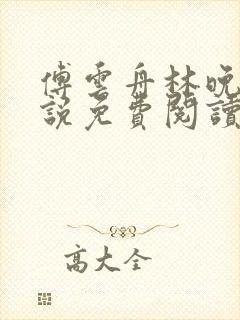 傅雲舟林晚
說免費閱讀
高大全